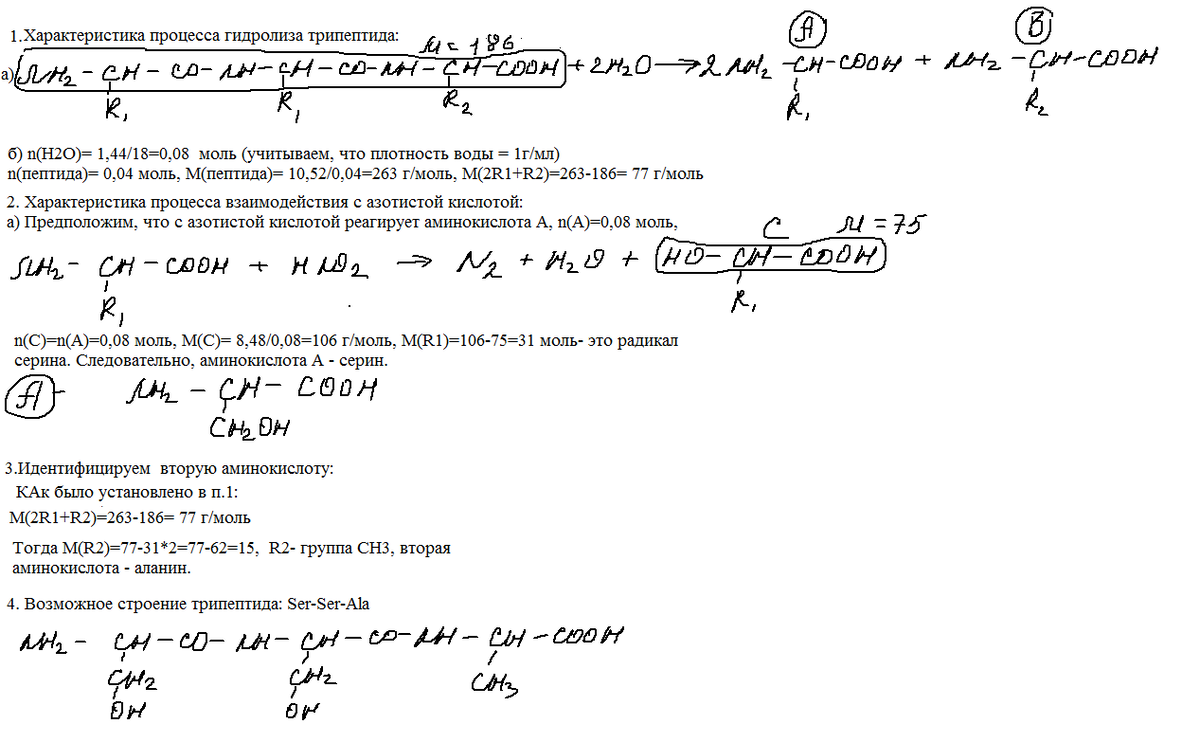 1.Характеристика процесса гидролиза трипептида:
M = 186
A
B
а) NH2 – CH – CO – NH – CH – CO – NH – CH – COOH + 2H2O → 2 NH2 – CH – COOH + NH2 – CH – COOH
R1 R1 R2 R1 R2
б) n(H2O)= 1,44/18=0,08 моль (учитываем, что плотность воды = 1г/мл)
n(пептида)= 0,04 моль, М(пептида)= 10,52/0,04=263 г/моль, М(2R1+R2)=263-186= 77 г/моль
2. Характеристика процесса взаимодействия с азотистой кислотой:
а) Предположим, что с азотистой кислотой реагирует аминокислота А, n(A)=0,08 моль,
C M = 75
NH2 – CH – COOH + HNO2 → N2 + H2O + HO – CH – COOH
R1 R1
n(C)=n(A)=0,08 моль, М(С)= 8,48/0,08=106 г/моль, М(R1)=106-75=31 моль- это радикал
серина. Следовательно, аминокислота А - серин.
A – NH2 – CH – COOH
CH2OH
3.Идентифицируем вторую аминокислоту:
КАк было установлено в п.1:
М(2R1+R2)=263-186= 77 г/моль
Тогда М(R2)=77-31*2=77-62=15, R2- группа СН3, вторая
аминокислота - аланин.
4. Возможное строение трипептида: Ser-Ser-Ala
NH2 – CH – CO – NH – CH – CO – NH – CH – COOH
CH2 CH2 CH3
OH OH